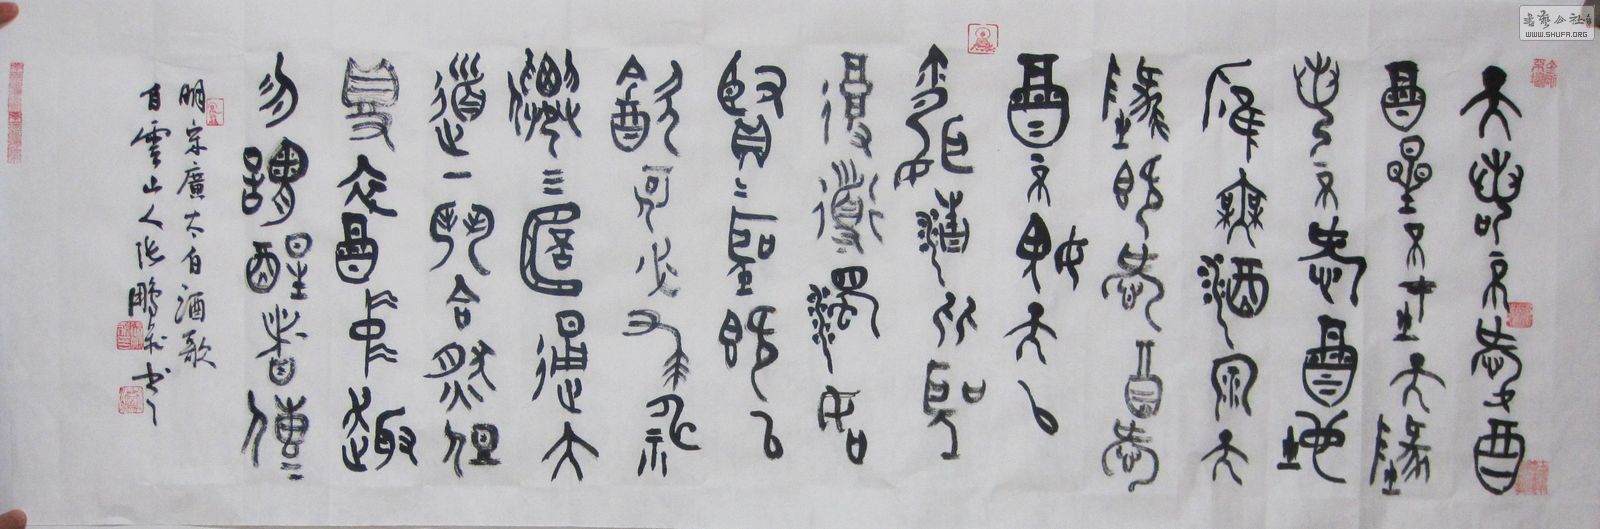 天若不愛酉
酉星不在天墜
若不愛酉地
應無酒泉天
墜既愛酉愛
酉不媿天已
聞清比聖
復道濁如
賢聖既已
飲何必求神
仙三杯通大
道一斗合然但
得酉中趣
勿謂醒者傳
明宗廣太白酒歌
白雲山人張鵬
書藝公社
WWW.SHUFA.ORG